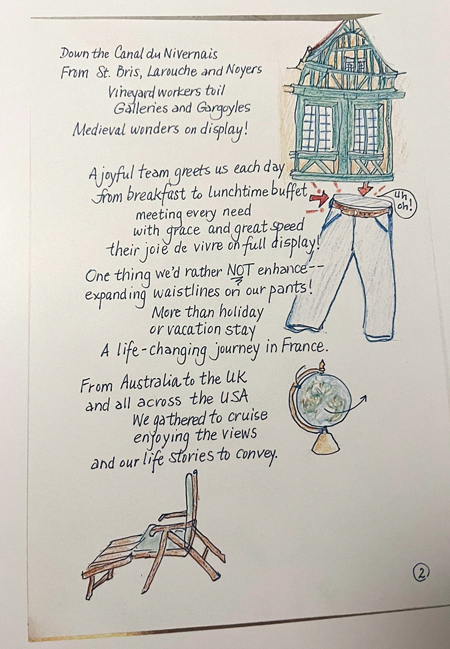 Down the Canal du Nivernais
From St. Bris, Larouche and Noyers
Vineyard workers toil
Galleries and Gargoyles
Medieval wonders on display!
A joyful team greets us each day
from breakfast to lunchtime buffet
meeting every need
with grace and great speed
their joie de vivre on full display!
Uh oh!
One thing we'd rather NOT enhance--
expanding waistlines on our pants!
More than holiday
or vacation stay
A life-changing journey in France.
From Australia to the UK
and all across the USA
We gathered to cruise
enjoying the views
and our life stories to convey.
2